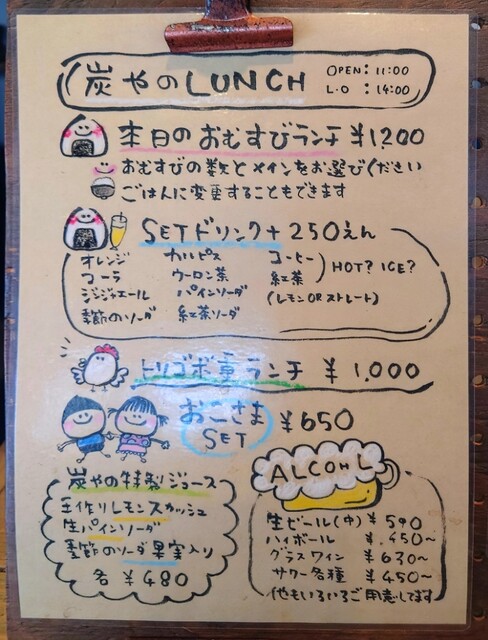 炭やのLUNCH
OPEN: 11:00
L.O : 14:00
本日のおむすびランチ ¥1200
おむすびの数とメインをお選びください
ごはんに変更することもできます
SETドリンク+250えん
オレンジ カルピス コーヒー
コーラ ウーロン茶 紅茶
HOT? ICE?
ジンジャエール パインソーダ (レモンORストレート)
季節のソーダ 紅茶ソーダ
トリゴボ重ランチ ¥1,000
おこさま
SET
¥650
炭やの特製ジュース
手作りレモンスカッシュ
生パインソーダ
季節のソーダ果実入り
各 ¥480
ALCOHL
生ビール(中) ¥590
ハイボール ¥450~
グラスワイン ¥630~
サワー各種 ¥450~
他もいろいろご用意してます